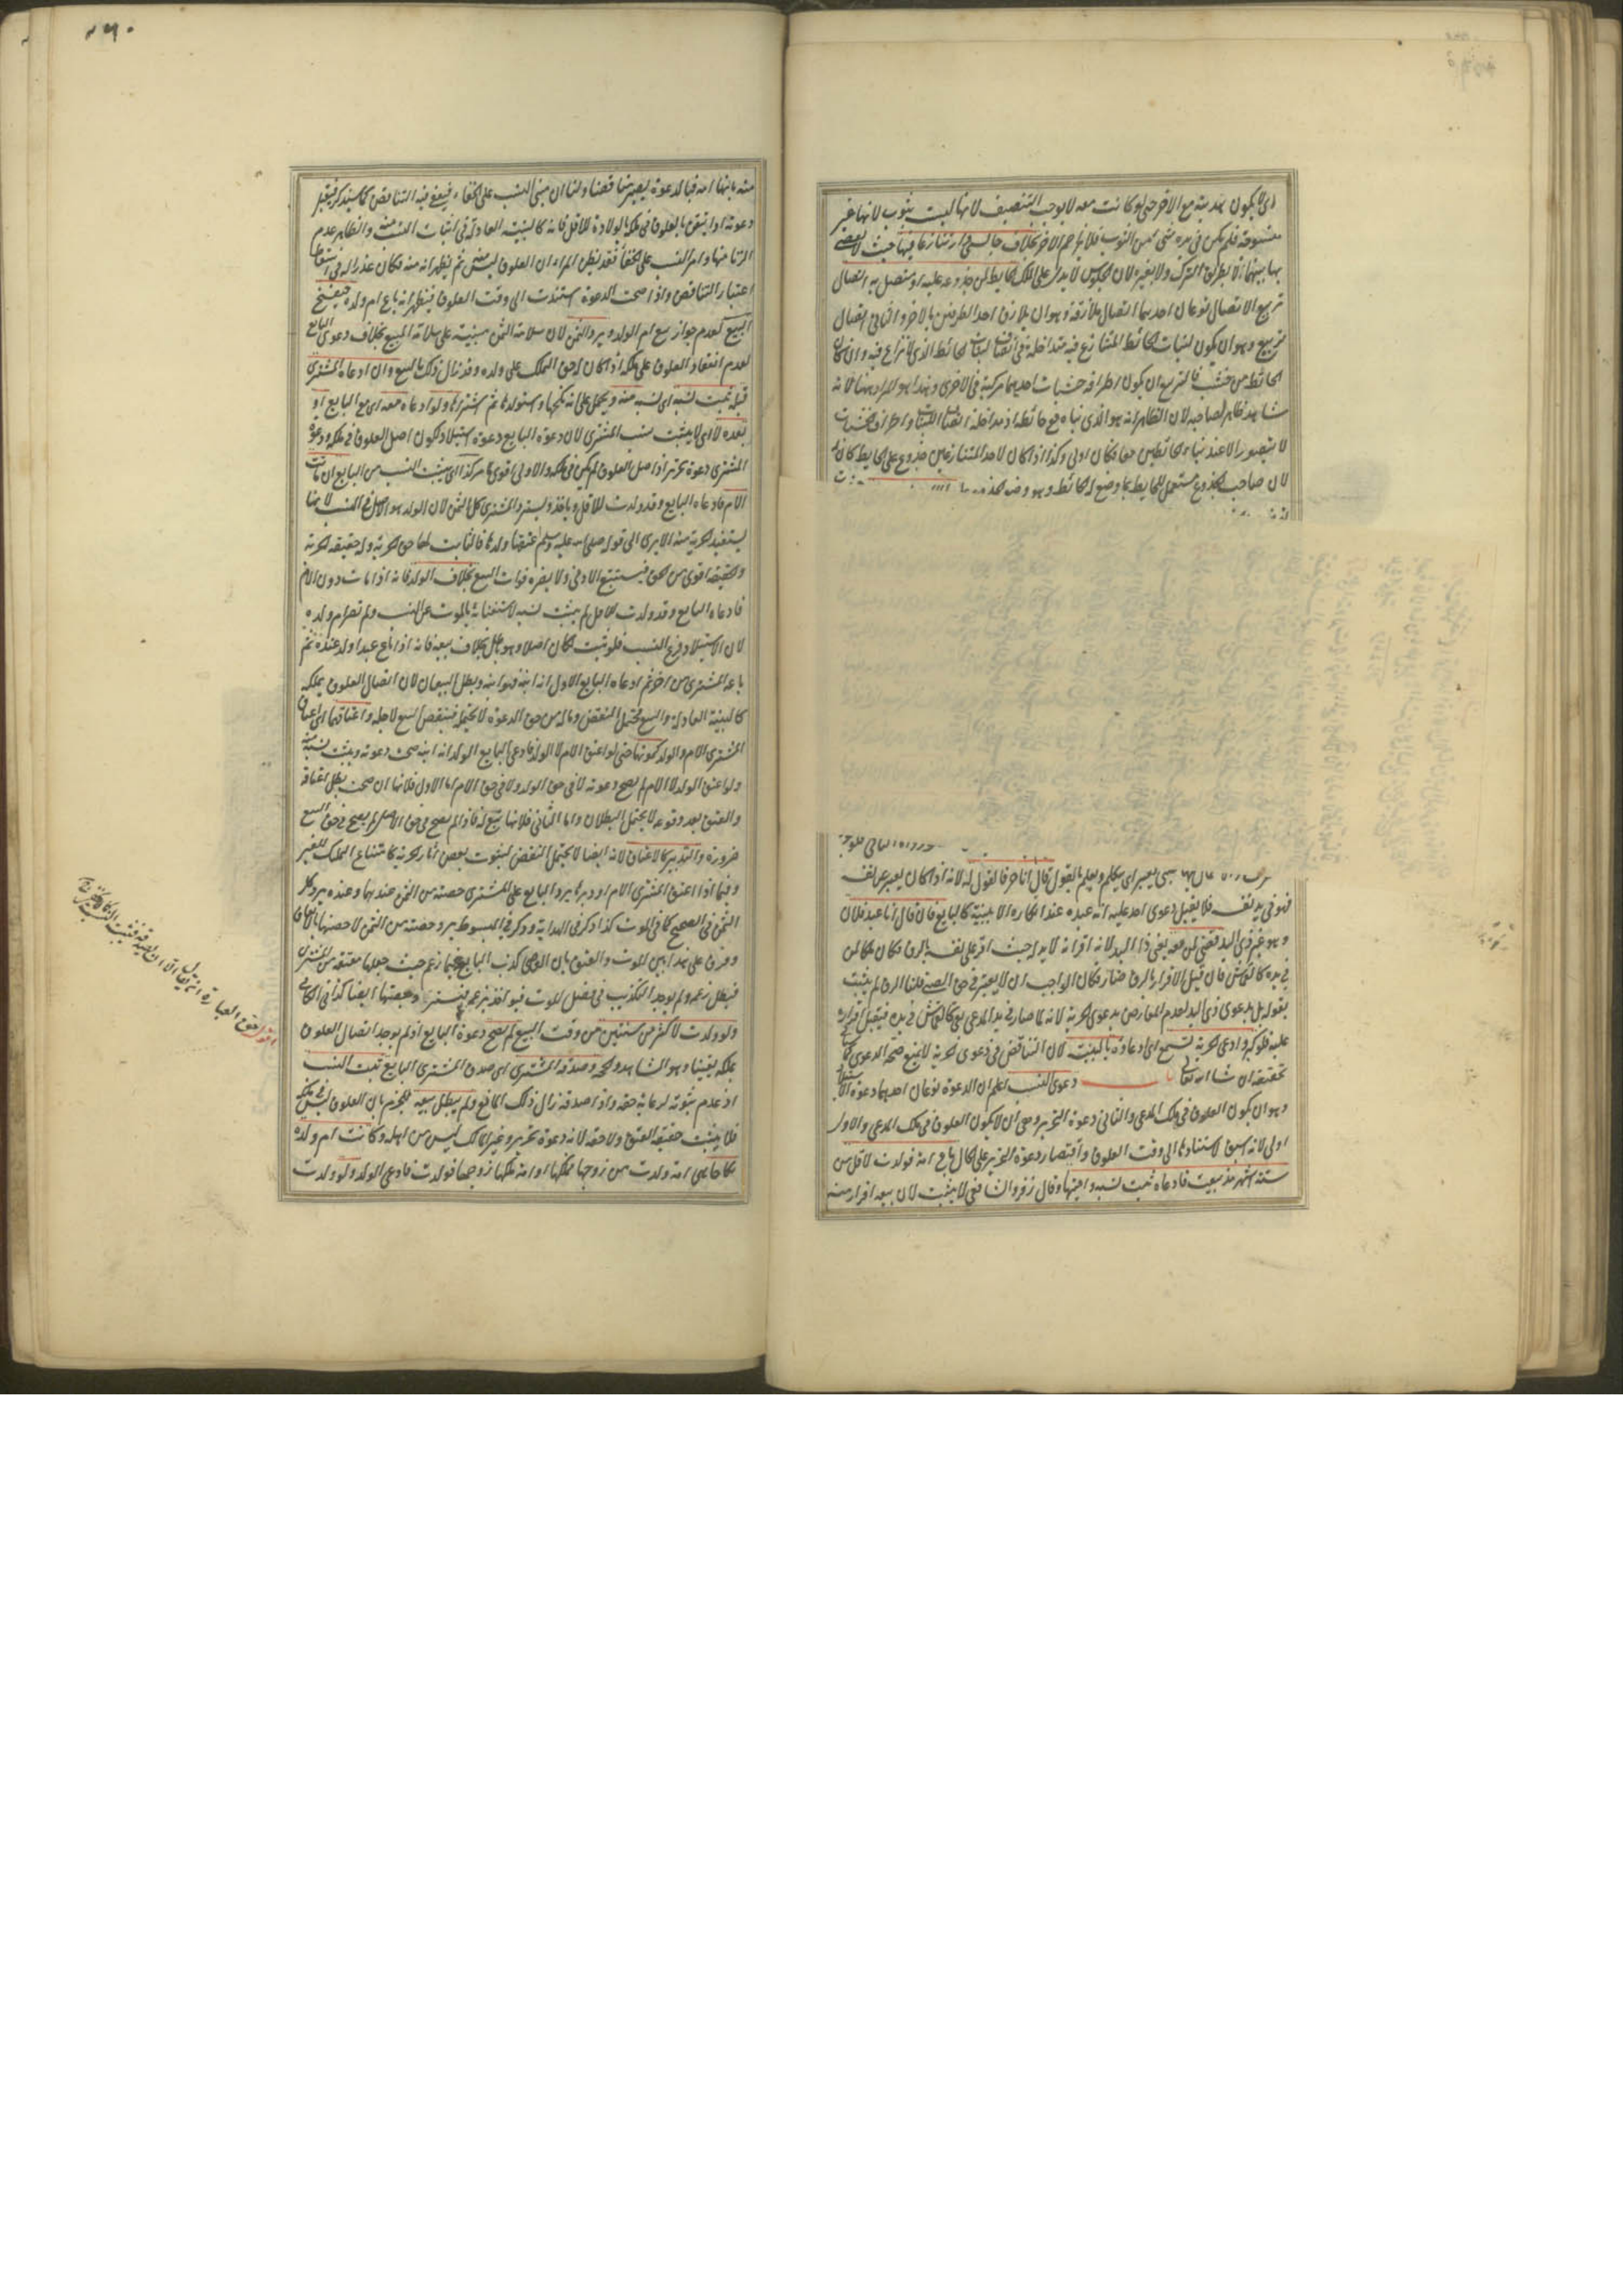 اى لا يكون هدبته مع الاخر حتى لو كانت معه لا يوجب التنصيف لانها ليست بثوب لانها غير
منسوجة فلم يكن فى يده شئ من الثوب فلا يزاحم الاخر بخلاف جالسى دار تنازعا فيها حيث لا يقضى
بها بينهما لا بطريق الترك ولا بغيره لان الجلوس لا يدل على الملك الحايط لمن جذوعه عليه او متصل به اتصال
تربيع الاتصال نوعان احدهما اتصال ملازقة وهو ان يلازق احد الطرفين بالاخر والثانى اتصال
تربيع وهو ان يكون لبنات الحائط المتنازع فيه متداخلة فى انصاف لبنات الحائط الذى لا نزاع فيه وان كان
الحائط من خشب فالتربيع ان يكون اطراف خشبات احديهما مركبة فى الاخرى وهذا هو المراد ههنا لانه
شاهد ظاهر لصاحبه لان الظاهر انه هو الذى بناه مع حائطه اذ مداخلة انصاف اللبنات واطراف الخشبات
لا يتصور الا عند بناء الحائطين معا فكان اولى وكذا اذا كان لاحد المتنازعين جذوع على الحايط كان له
لان صاحب الجذوع مستعمل للحايط بما وضع له الحائط وهو وضع الجذوع
صبى يعبر اى يتكلم ويعلم ما يقول قال انا حر فالقول له لانه اذا كان يعبر عن نفسه
فهو فى يد نفسه فلا يقبل دعوى احد عليه انه عبده عند انكاره الا ببينة كالبالغ فان قال انا عبد فلان
وهو غير ذى اليد قضى لمن معه يعنى ذا اليد لانه اقر انه لا يد له حيث اقر على نفسه بالرق فكان ملكا لمن
فى يده كالقماش فان قيل الاقرار بالرق ضار فكان الواجب ان لا يعتبر فى حق الصبى قلنا الرق لم يثبت
بقوله بل بدعوى ذى اليد لعدم المعارض بدعوى الحرية لانه لما صار فى يد المدعى بقى كالقماش فى يده فيقبل اقراره
عليه فلو كبر وادعى الحرية تسمع اى ادعاؤه بالبينة لان التناقض فى دعوى الحرية لا يمنع صحة الدعوى كما سيجئ
تحقيقه ان شاء الله تعالى باب دعوى النسب اعلم ان الدعوة نوعان احدهما دعوة الاستيلاد
وهو ان يكون العلوق فى ملك المدعى والثانى دعوة التحرير وهى ان لا يكون العلوق فى ملك المدعى والاول
اولى لانه اسبق لاستنادها الى وقت العلوق واقتصار دعوة التحرير على الحال باع امة فولدت لاقل من
ستة اشهر مذ بيعت فادعاه ثبت نسبه واميتها وقال زفر والشافعى لا يثبت لان بيعه اقرار منه
منه بانها امة فبالدعوة يصير مناقضا ولنا ان مبنى النسب على الخفاء فيعفى فيه التناقض كما سيذكر فتقبل
دعوته اذا تيقن بالعلوق فى ملكه بالولادة للاقل فانه كالبينة العادلة فى اثبات النسب منه والظاهر عدم
الزنا منها وامر النسب على الخفاء فقد يظن المرء ان العلوق ليس منى ثم يظهر انه منه فكان عذرا له فى اسقاط
اعتبار التناقض واذا صحت الدعوة استندت الى وقت العلوق فيظهر انه باع ام ولده فيفسخ
البيع لعدم جواز بيع ام الولد ويرد الثمن لان سلامة الثمن مبنية على سلامة المبيع بخلاف دعوى ابى البائع
لعدم انعقاد العلوق على ملكه اذا كان له حق التملك على ولده وقد زال ذلك بالبيع وان ادعاه المشترى
قبله ثبت نسبه اى نسبه منه ويحمل على انه نكحها واستولدها ثم اشتراها ولو ادعاه معه اى مع البايع او
بعده لا اى لا يثبت نسب المشترى لان دعوة البايع دعوة استيلاد لكون اصل العلوق فى ملكه ودعوة
المشترى دعوة تحرير اذ اصل العلوق لم يكن فى ملكه والاولى اقوى كما مر كذا اى يثبت النسب من البايع ان ماتت
الام فادعاه البايع وقد ولدت للاقل وياخذه ويسترد المشترى كل الثمن لان الولد هو الاصل فى النسب لانها
تستفيد الحرية منه الا يرى الى قوله صلى الله عليه وسلم اعتقها ولدها فالثابت لها حق الحرية وله حقيقة الحرية
والحقيقة اقوى من الحق فيستتبع الادنى ولا يضره فوات التبع بخلاف الولد فانه اذا مات دون الام
فادعاه البايع وقد ولدت للاقل لم يثبت نسبه لاستغنائه بالموت عن النسب ولم تصر ام ولده
لان الاستيلاد فرع النسب فلو ثبت لكان اصلا وهو باطل بخلاف بيعه فانه اذا باع عبدا ولد عنده ثم
باعه المشترى من اخر ثم ادعاه البايع الاول انه ابنه فهو ابنه وبطل البيعان لان اتصال العلوق بملكه
كالبينة العادلة والبيع محتمل النقض وماله من حق الدعوة لا يحتمله فينتقض البيع لاجله واعتاقهما اى اعتاق
المشترى الام والولد كموتهما حتى لو اعتق الام لا الولد فادعى البايع الولد انه ابنه صحت دعوته ويثبت نسبه منه
ولو اعتق الولد لا الام لم يصح دعوته لا فى حق الولد ولا فى حق الام اما الاول فلانها ان صحت بطل اعتاقه
والعتق بعد وقوعه لا يحتمل البطلان واما الثانى فلانها تبع له فاذا لم يصح فى حق الاصل لم يصح فى حق التبع
ضرورة والتدبير كالاعتاق لانه ايضا لا يحتمل النقض لثبوت بعض آثار الحرية كامتناع التملك للغير
وفيما اذا اعتق المشترى الام او دبرها يرد البايع على المشترى حصته من الثمن عندهما وعنده يرد كل
الثمن فى الصحيح كما فى الموت كذا ذكر فى الهداية وذكر فى المبسوط يرد حصته من الثمن لا حصتها بالاتفاق
وفرق على هذا بين الموت والعتق بان القاضى كذب البايع فيما زعم حيث جعلها معتقة من المشترى
فبطل زعمه ولم يوجد التكذيب فى فصل الموت فيؤاخذ بزعمه فيسترد حصتها ايضا كذا فى الكافى
ولو ولدت لاكثر من سنتين من وقت البيع لم يصح دعوة البايع اذ لم يوجد اتصال العلوق
بملكه يقينا وهو الشاهد والحجة وصدقه المشترى اى صدق المشترى البايع ثبت النسب
اذ عدم ثبوته لرعاية حقه واذا صدقه زال ذلك المانع ولم يبطل بيعه للجزم بان العلوق ليس فى ملكه
فلا يثبت حقيقة العتق ولا حقه لانه دعوة تحرير وغير المالك ليس من اهله وكانت ام ولده
نكاحا يعنى امة ولدت من زوجها فملكها او امة ملكها زوجها فولدت فادعى الولد ولو ولدت